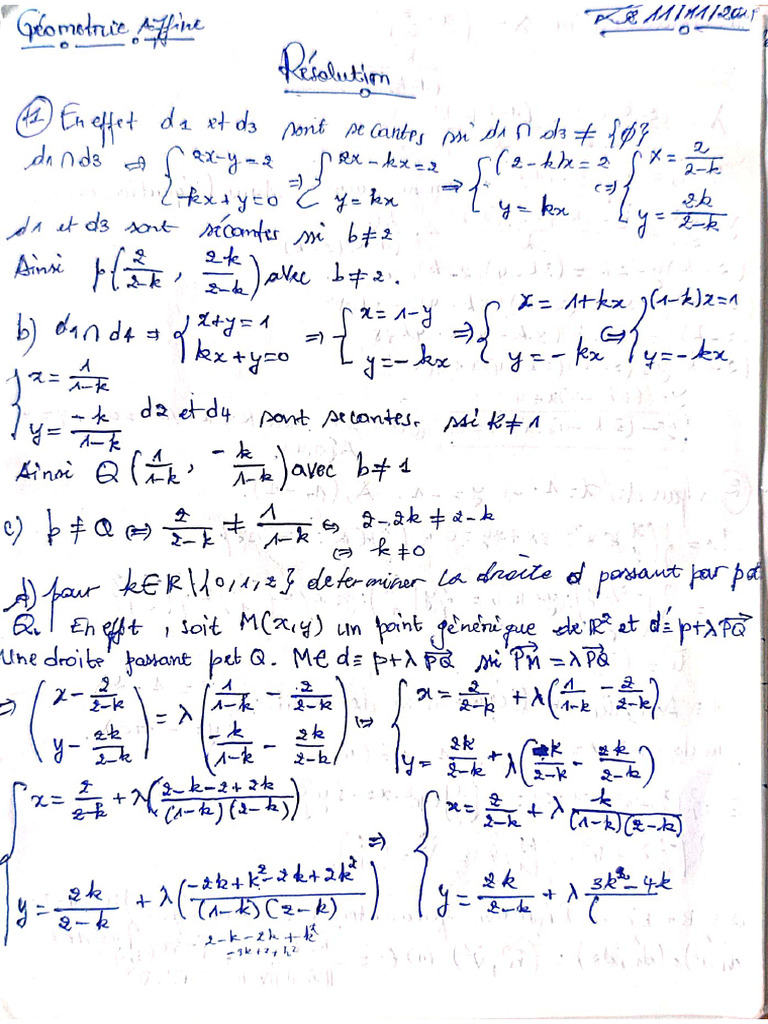 Géometrie Affine
Le 11/11/201
Résolution
11) En effet d1 et d3 sont secantes ssi d1 ∩ d3 ≠ {∅}
d1∩d3 ⇒ { 2x-y=2 ; -kx+y=0 ⇒ { 2x-kx=2 ; y=kx ⇒ { (2-k)x=2 ; y=kx ⇔ { x=2/(2-k) ; y=2k/(2-k)
d1 et d3 sont sécantes ssi b≠2
Ainsi p(2/(2-k), 2k/(2-k)) avec b≠2.
b) d1∩d4 ⇒ { x+y=1 ; kx+y=0 ⇒ { x=1-y ; y=-kx ⇒ { x=1+kx ; y=-kx ⇔ { (1-k)x=1 ; y=-kx
{ x=1/(1-k) ; y=-k/(1-k) d2 et d4 sont secantes. ssi k≠1
Ainsi Q(1/(1-k), -k/(1-k)) avec b≠1
c) p≠Q ⇔ 2/(2-k) ≠ 1/(1-k) ⇔ 2-2k≠2-k
⇔ k≠0
d) pour k∈R\{0,1,2} determiner la droite d passant par p et
Q. En efft, soit M(x,y) un point générique de R² et d≡p+λPQ
Une droite passant p et Q. M∈d≡p+λPQ ssi PM=λPQ
⇒ (x-2/(2-k) ; y-2k/(2-k)) = λ(1/(1-k) - 2/(2-k) ; -k/(1-k) - 2k/(2-k)) ⇔ { x=2/(2-k) + λ(1/(1-k) - 2/(2-k)) ; y=2k/(2-k) + λ(-k/(2-k) - 2k/(2-k))
{ x=2/(2-k) + λ((2-k-2+2k)/((1-k)(2-k))) ; y=2k/(2-k) + λ((-2k+k²-2k+2k²)/((1-k)(2-k))) ⇒ { x=2/(2-k) + λ k/((1-k)(2-k)) ; y=2k/(2-k) + λ (3k²-4k)/(
2-k-2k+k²
-3k+2+k²